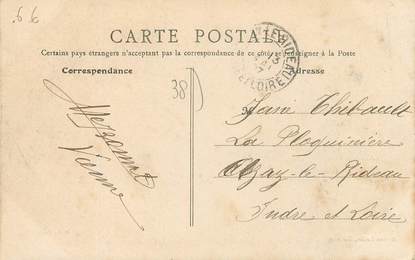 66
CARTE POSTALE
Certains pays étrangers n'acceptant pas la correspondance de ce côté, se renseigner à la Poste
Correspondance
Adresse
38
Vienne
Jani Thibault
La Ploquinière
Azay-le-Rideau
Indre et Loire